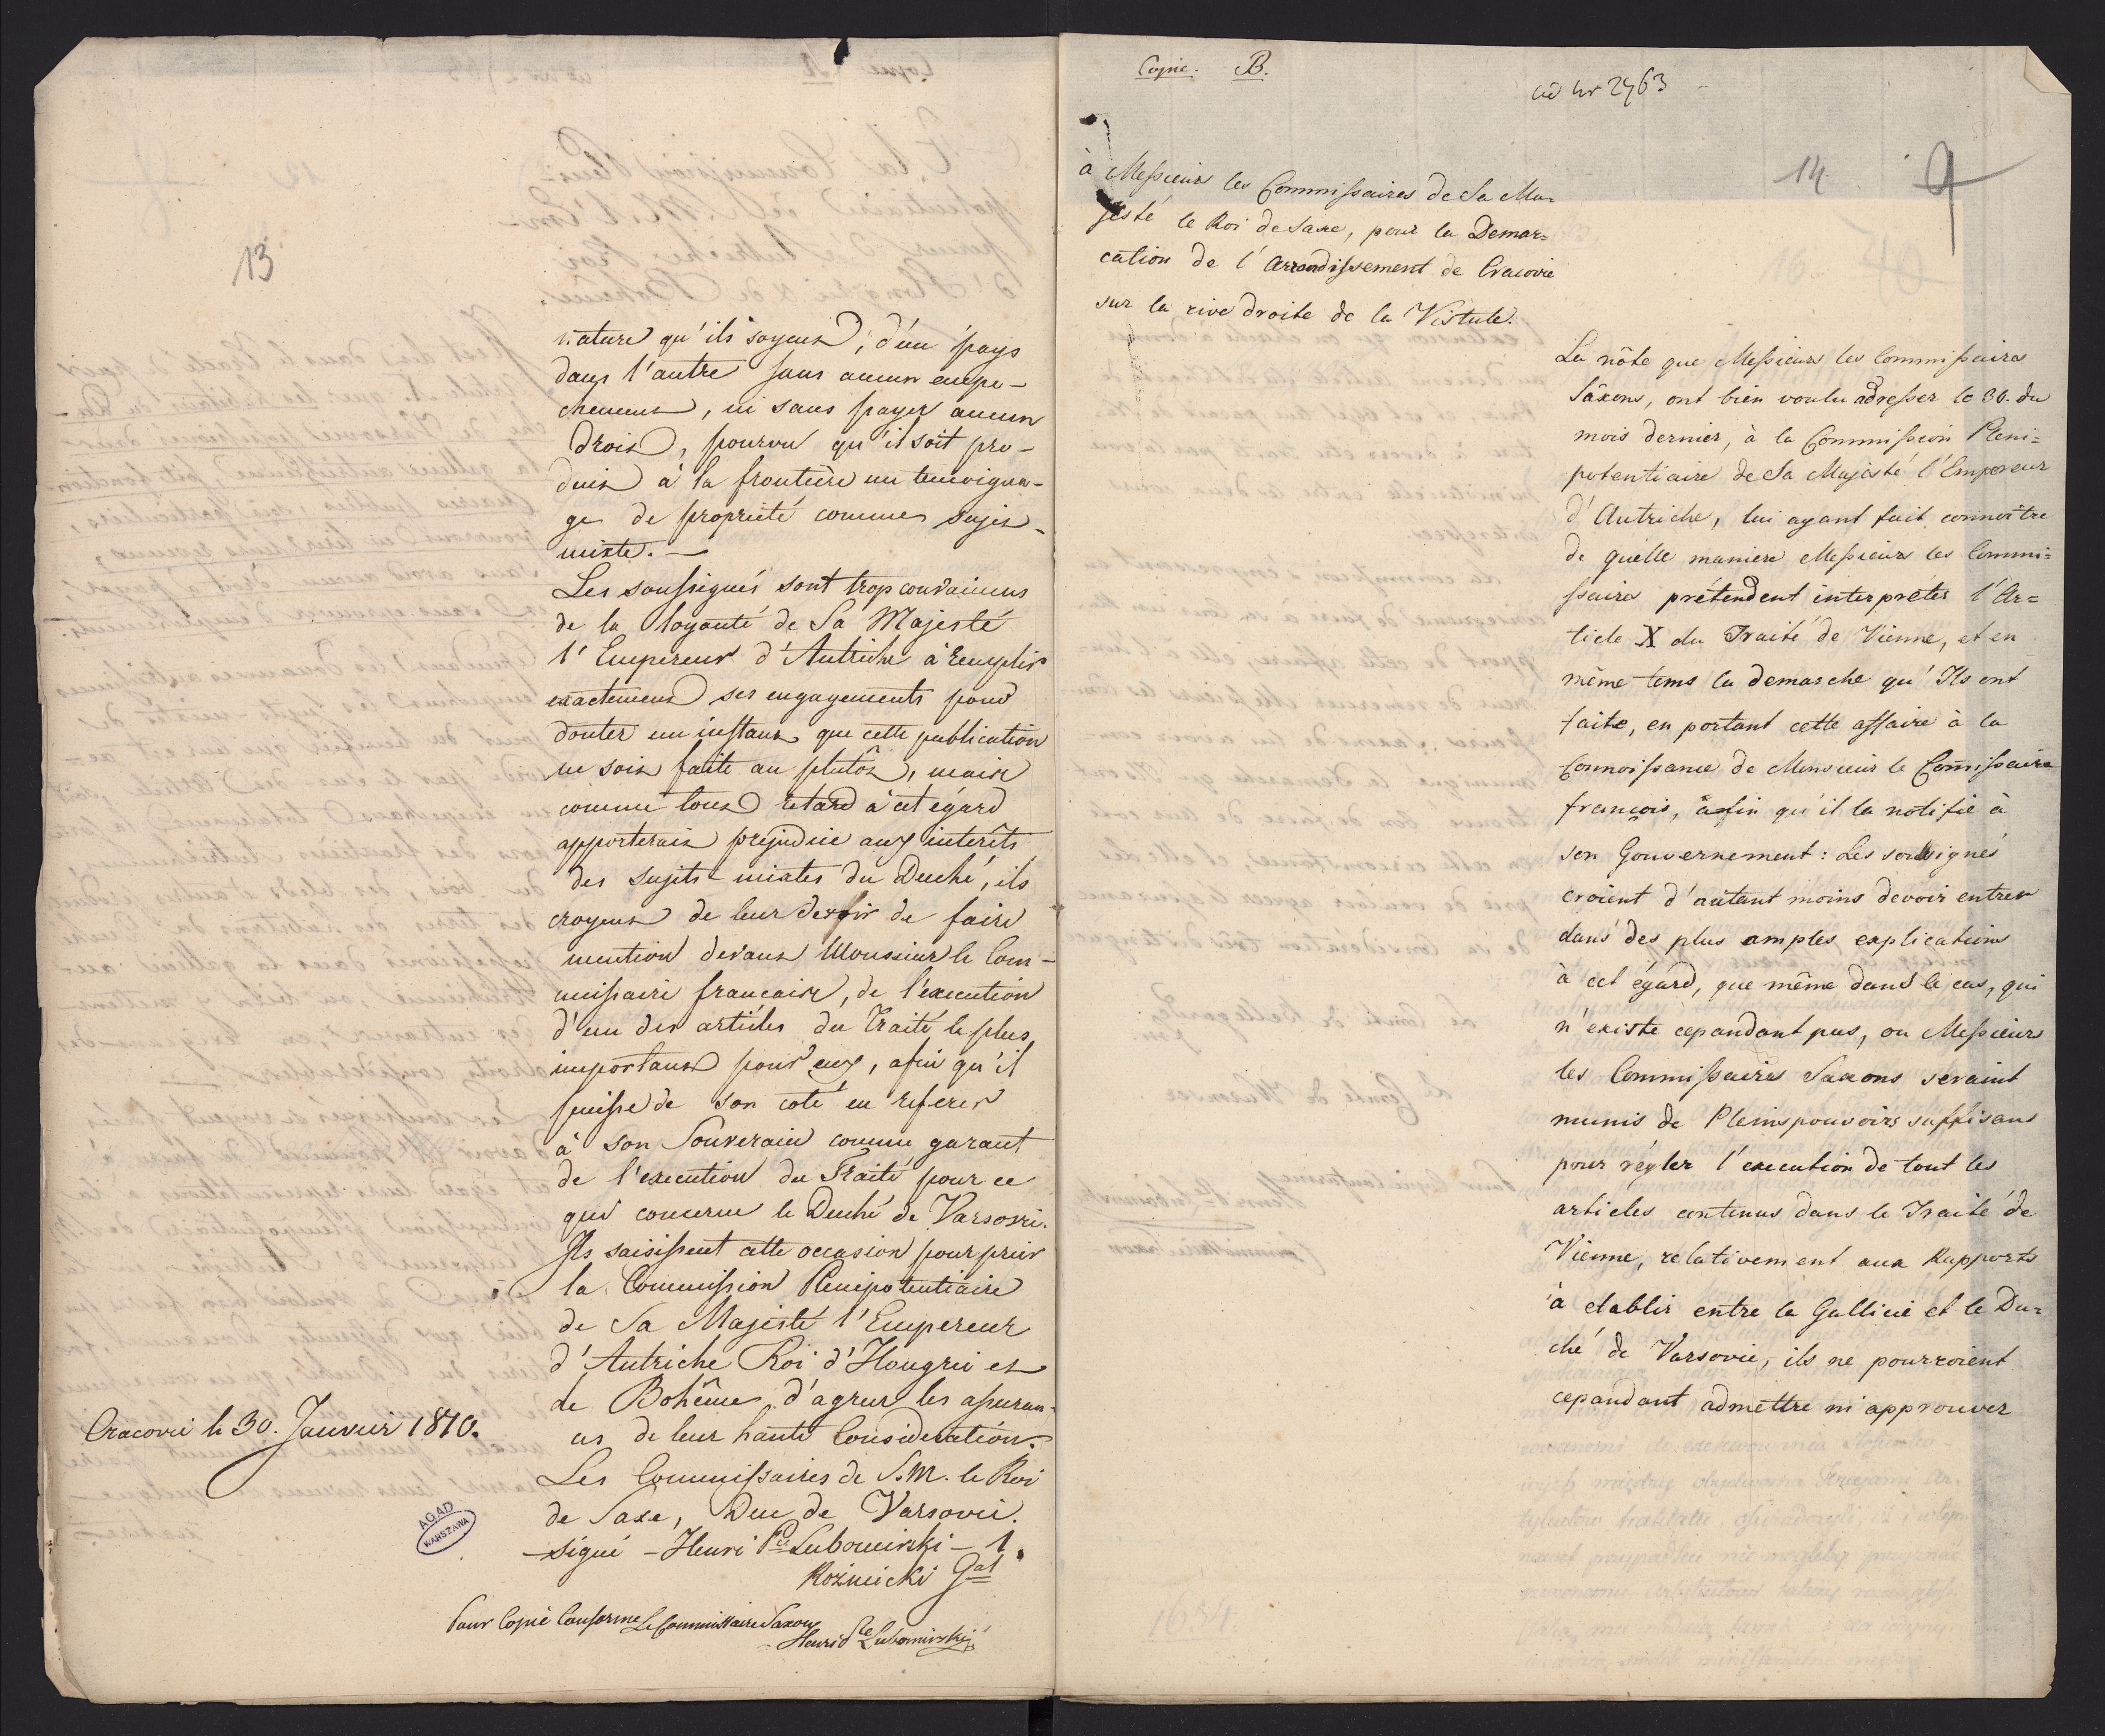 13
nature qu'ils soyent, d'un pays
dans l'autre sans aucun empe-
chement, ni sans payer aucun
droit, pourvu qu'il soit pro-
duit à la frontière un temoigna-
ge de propriété comme sujet-
mixte. —
Les soussignés sont trop convaincus
de la loyauté de Sa Majesté
l'Empereur d'Autriche à remplir
exactement ses engagements pour
douter un instant que cette publication
ne soit faite au plutôt, mais
comme tout retard à cet égard
apporterait préjudice aux interêts
des sujets mixtes du Duché, ils
croyent de leur devoir de faire
mention devant Monsieur le Com-
missaire francais, de l'execution
d'un des articles du Traité le plus
important pour eux, afin qu'il
puisse de son coté en referer
à son Souverain comme garant
de l'execution du Traité pour ce
qui concerne le Duché de Varsovie.
Ils saisissent cette occasion pour prier
la Commission Plenipotentiaire
de Sa Majesté l'Empereur
d'Autriche Roi d'Hongrie et
de Bohême d'agreer les assuran-
ces de leur haute Consideration.
Cracovie le 30. Janvier 1810.
Les Commissaires de S. M. le Roi
de Saxe, Duc de Varsovie.
— signé — Henri Pce Lubomirski —
Rożniecki Gal
AGAD
WARSZAWA
Pour Copie Conforme Le Commissaire Saxon
Henri Pce Lubomirski
Copie. B.
ad Nr 2463
14
9
à Messieurs les Commissaires de Sa Ma=
jesté le Roi de Saxe, pour la Demar=
cation de l'Arrondissement de Cracovie
sur la rive droite de la Vistule.
La nôte que Messieurs les Commissaires
Saxons, ont bien voulu adresser le 30. du
mois dernier, à la Commission Pleni=
potentiaire de Sa Majesté l'Empereur
d'Autriche, lui ayant fait connoitre
de quelle maniere Messieurs les Commi=
ssaires prétendent interpréter l'Ar=
ticle X du Traité de Vienne, et en
même tems la demarche qu'Ils ont
faite, en portant cette affaire à la
Connoissance de Monsieur le Comissaire
francois, afin qu'il la notifie à
son Gouvernement: Les soussignés
croient d'autant moins devoir entrer
dans des plus amples explications
à cet égard, que même dans le cas, qui
n'existe cepandant pas, ou Messieurs
les Commissaires Saxons seraint
munis de Pleinspouvoirs suffisans
pour régler l'execution de tout les
articles contenus dans le Traité de
Vienne, relativement aux Rapports
à etablir entre la Gallicie et le Du=
ché de Varsovie, ils ne pourroient
cepandant admettre ni approuver
1634